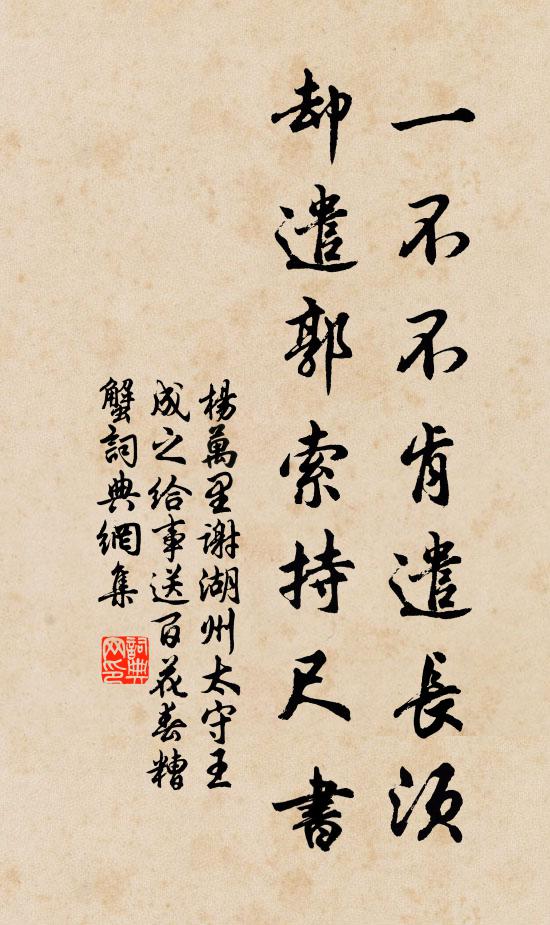 一不不肯遣長須
却遣郭索持尺書
楊萬里謝湖州太守王
成之給事送百花春糟
蟹詞典網集
詞典
网印